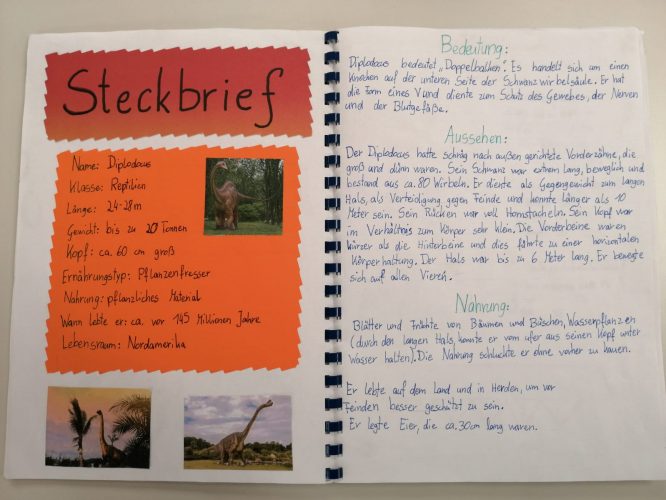 Steckbrief
Name: Diplodocus
Klasse: Reptilien
Länge: 24-28m
Gewicht: bis zu 20 Tonnen
Kopf: ca. 60 cm groß
Ernährungstyp: Pflanzenfresser
Nahrung: pflanzliches Material
Wann lebte er: ca. vor 145 Millionen Jahre
Lebensraum: Nordamerika
Bedeutung:
Diplodocus bedeutet „Doppelbalken". Es handelt sich um einen
Knochen auf der unteren Seite der Schwanzwirbelsäule. Er hat
die Form eines V und diente zum Schutz des Gewebes, der Nerven
und der Blutgefäße.
Aussehen:
Der Diplodocus hatte schräg nach außen gerichtete Vorderzähne, die
groß und dünn waren. Sein Schwanz war extrem lang, beweglich und
bestand aus ca. 80 Wirbeln. Er diente als Gegengewicht zum langen
Hals, als Verteidigung gegen Feinde und konnte länger als 10
Meter sein. Sein Rücken war voll Hornstacheln. Sein Kopf war
im Verhältnis zum Körper sehr klein. Die Vorderbeine waren
kürzer als die Hinterbeine und dies führte zu einer horizontalen
Körperhaltung. Der Hals war bis zu 6 Meter lang. Er bewegte
sich auf allen Vieren.
Nahrung:
Blätter und Früchte von Bäumen und Büschen, Wasserpflanzen
(durch den langen Hals, konnte er vom ufer aus seinen Kopf unter
Wasser halten). Die Nahrung schluckte er ohne vorher zu kauen.
Er lebte auf dem Land und in Herden, um vor
Feinden besser geschützt zu sein.
Er legte Eier, die ca. 30cm lang waren.